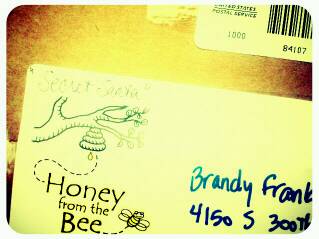 UNITED STATES
POSTAL SERVICE
1000
84107
"Secret Santa"
Honey
from the
Bee
Brandy Frank
4150 S 300